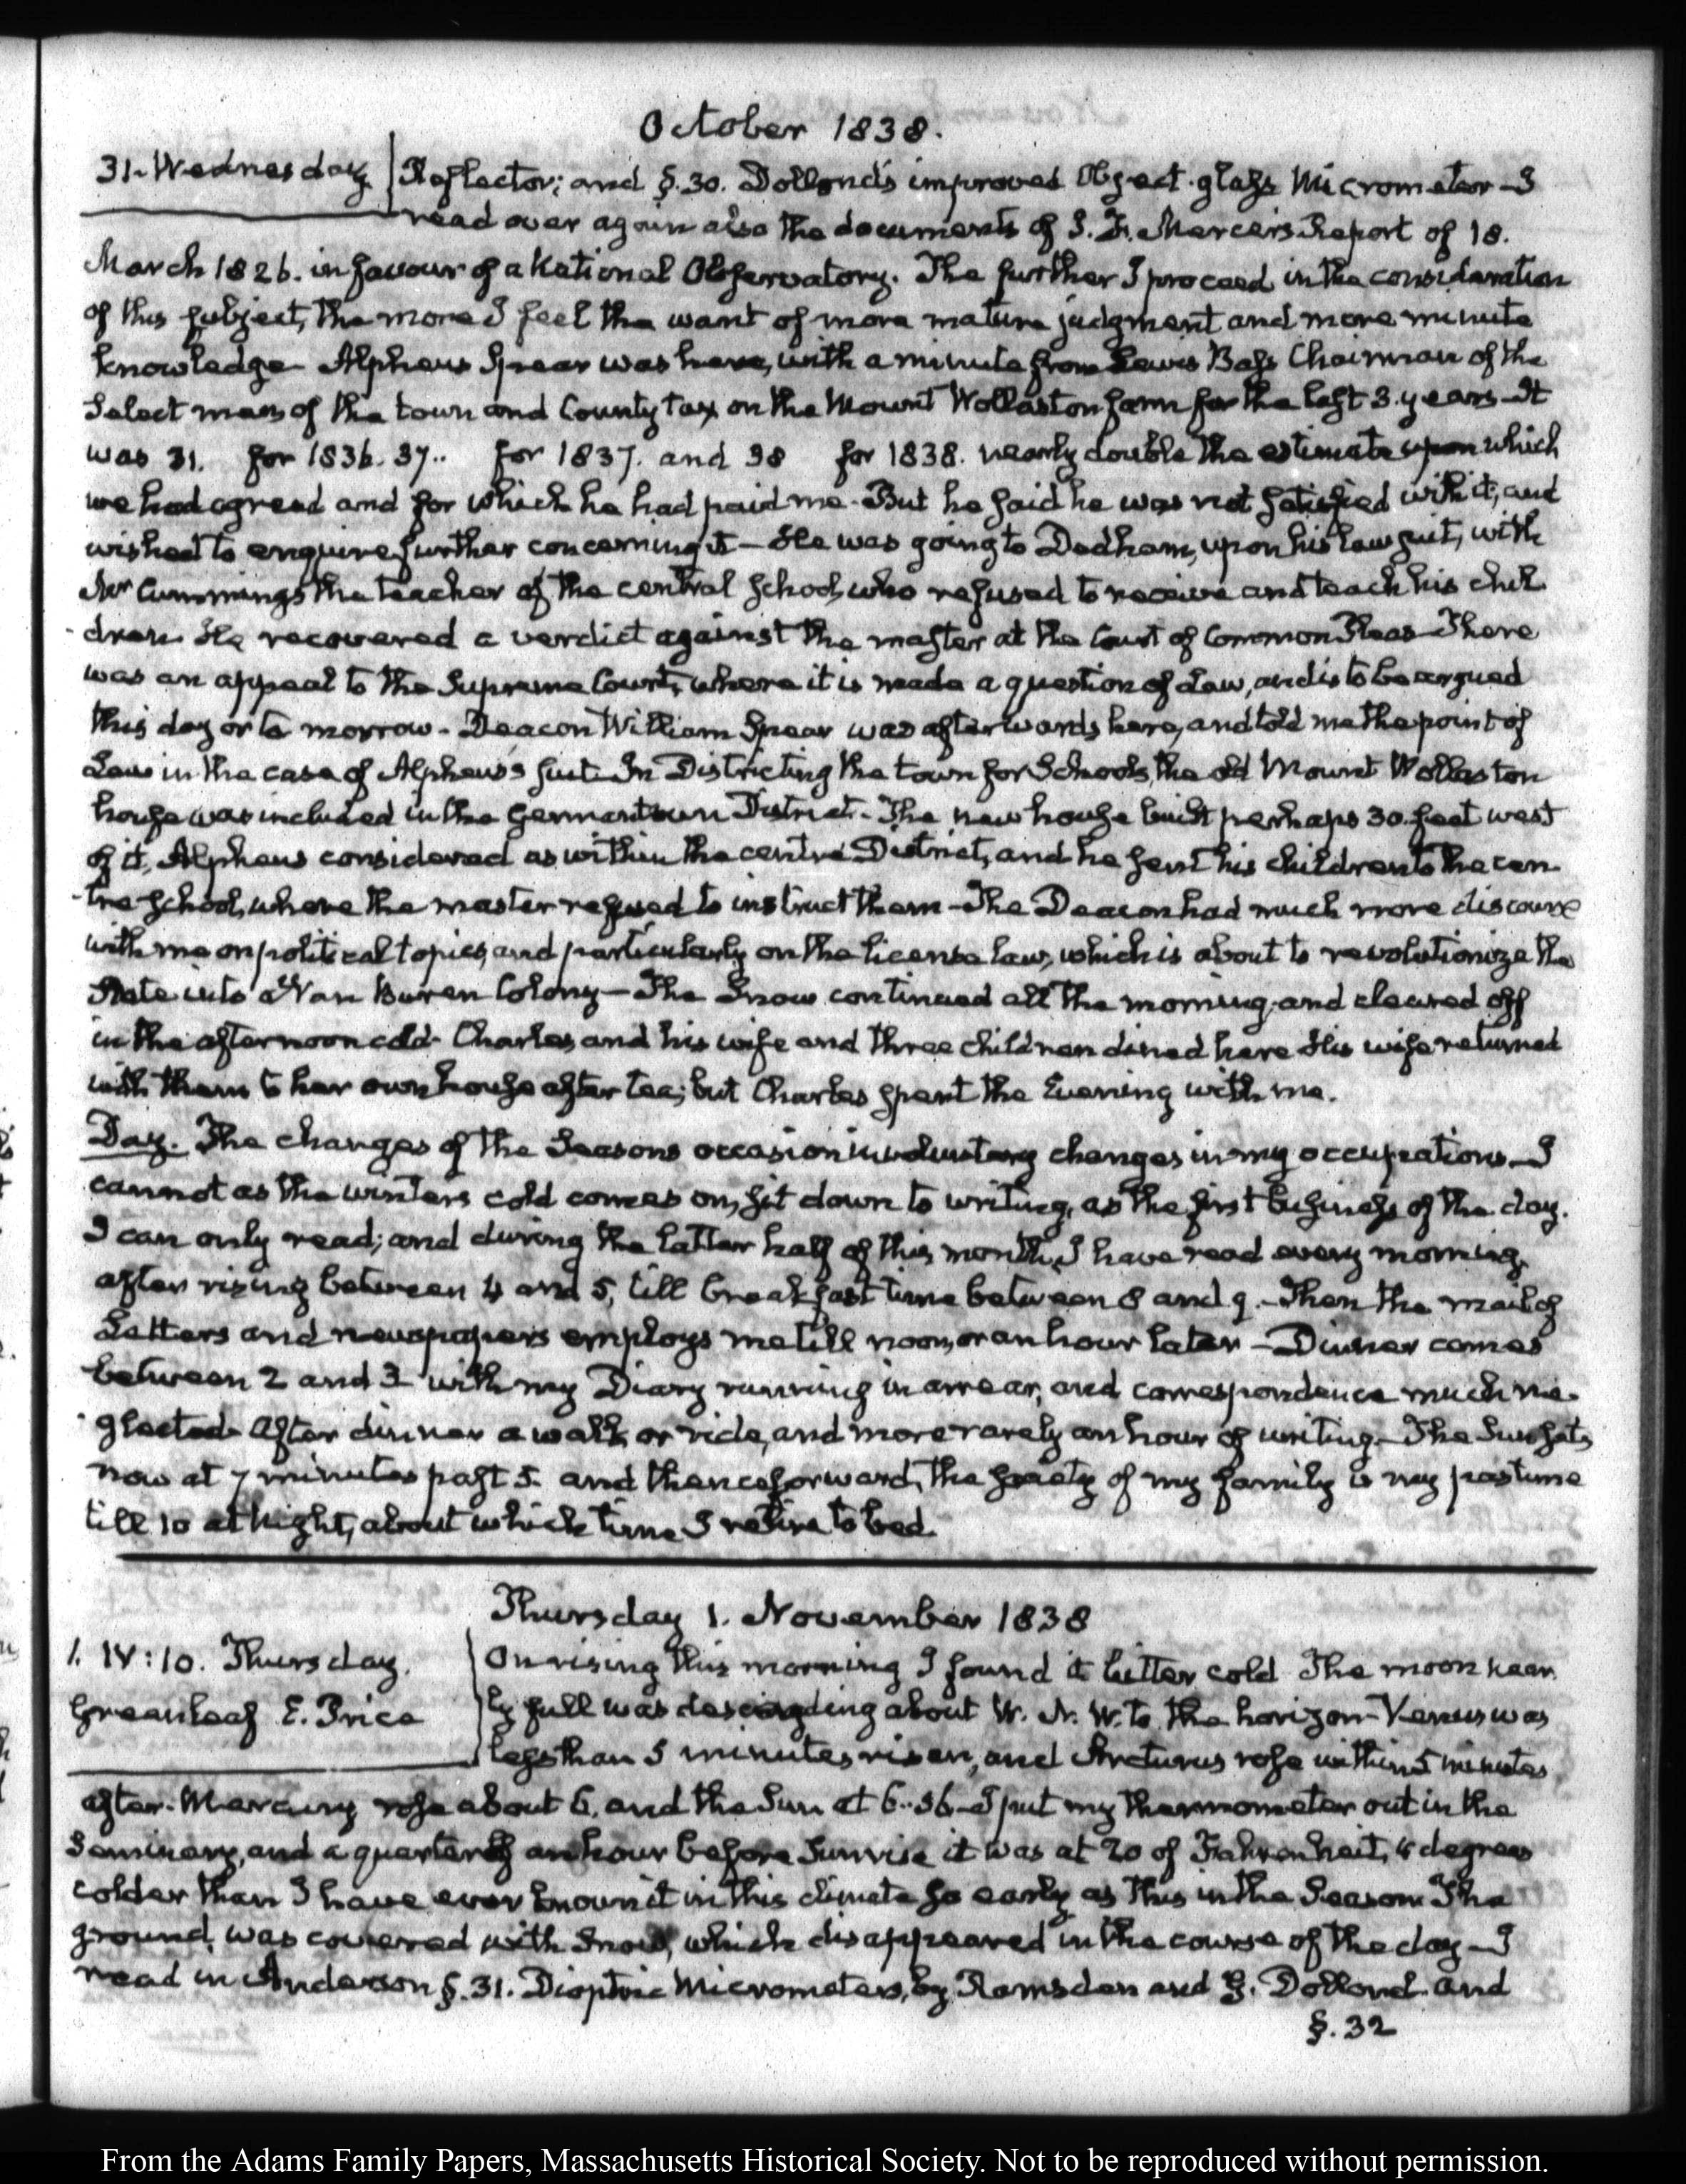 October 1838.
31. Wednesday Reflector; and §.30. Dollond's improved Object-glass Micrometer — I
read over again also the documents of J. F. Mercer's Report of 18.
March 1826. in favour of a National Observatory. The further I proceed in the consideration
of this subject, the more I feel the want of more mature judgment and more minute
knowledge — Alpheus Spear was here, with a minute from Lewis Bass Chairman of the
Select men of the town and County tax on the Mount Wollaston farm for the last 3. years — It
was 31. for 1836. 37.. for 1837. and 38 for 1838. nearly double the estimate upon which
we had agreed and for which he had paid me. But he said he was not satisfied with it, and
wished to enquire further concerning it — He was going to Dedham, upon his law suit, with
Mr Cummings the teacher of the central School, who refused to receive and teach his chil
-dren. He recovered a verdict against the master at the Court of Common Pleas — There
was an appeal to the Supreme Court, where it is made a question of Law, and is to be argued
this day or to morrow — Deacon William Spear was afterwards here, and told me the point of
Law in the case of Alpheus's suit. In Districting the town for Schools, the old Mount Wollaston
house was included in the Germantown District. The new house built perhaps 30. feet west
of it, Alpheus considered as within the centre District, and he sent his children to the cen
-tre school, where the master refused to instruct them — The Deacon had much more discourse
with me on political topics, and particularly on the license law, which is about to revolutionize the
State into a Van Buren Colony — The Snow continued all the morning, and cleared off
in the afternoon cold. Charles, and his wife and three children dined here His wife returned
with them to her own house after tea; but Charles spent the Evening with me.
Day. The changes of the Seasons occasion involuntary changes in my occupations — I
cannot as the winters cold comes on, sit down to writing, as the first business of the day.
I can only read; and during the latter half of this month, I have read every morning,
after rising between 4 and 5, till breakfast time between 8 and 9. — Then the mail of
Letters and newspapers employs me till noon, or an hour later — Dinner comes
between 2 and 3 with my Diary running in arrear, and correspondence much ne-
-glected. After dinner a walk or ride, and more rarely an hour of writing — The Sun sets
now at 7 minutes past 5. and thenceforward, the society of my family is my pastime
till 10 at Night, about which time I retire to bed.
Thursday 1. November 1838
1. IV:10. Thursday. On rising this morning I found it bitter cold The moon near
Greenleaf E. Price ly full was descending about W. N. W. to the horizon — Venus was
less than 5 minutes risen, and Arcturus rose within 5 minutes
after. Mercury rose about 6. and the Sun at 6..36 — I put my thermometer out in the
Seminary, and a quarter of an hour before Sunrise it was at 20 of Fahrenheit, 4 degrees
colder than I have ever known it in this climate so early as this in the Season. The
ground was covered with Snow, which disappeared in the course of the day — I
read in Anderson §.31. Dioptric Micrometers, by Ramsden and G. Dollond. and
§.32
From the Adams Family Papers, Massachusetts Historical Society. Not to be reproduced without permission.